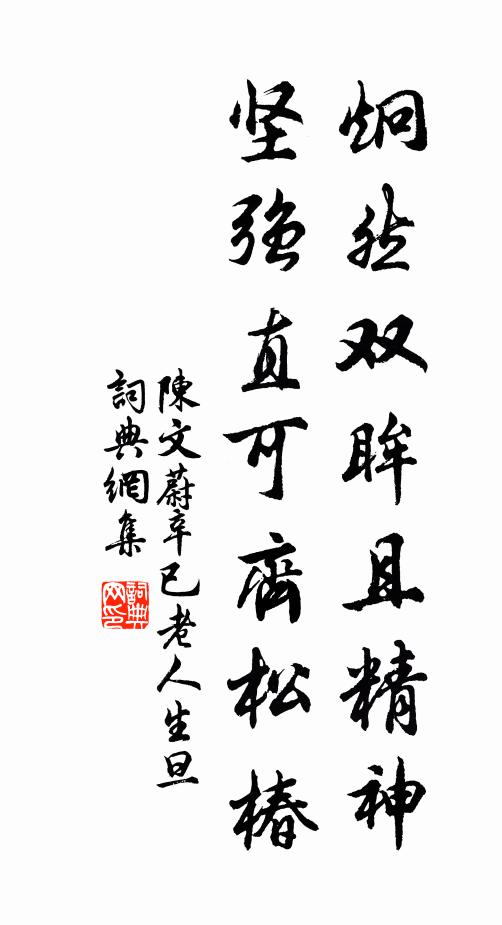 炯然双眸且精神
坚强直可齊松椿
陳文蔚辛巳老人生旦
詞典網集
詞典网印